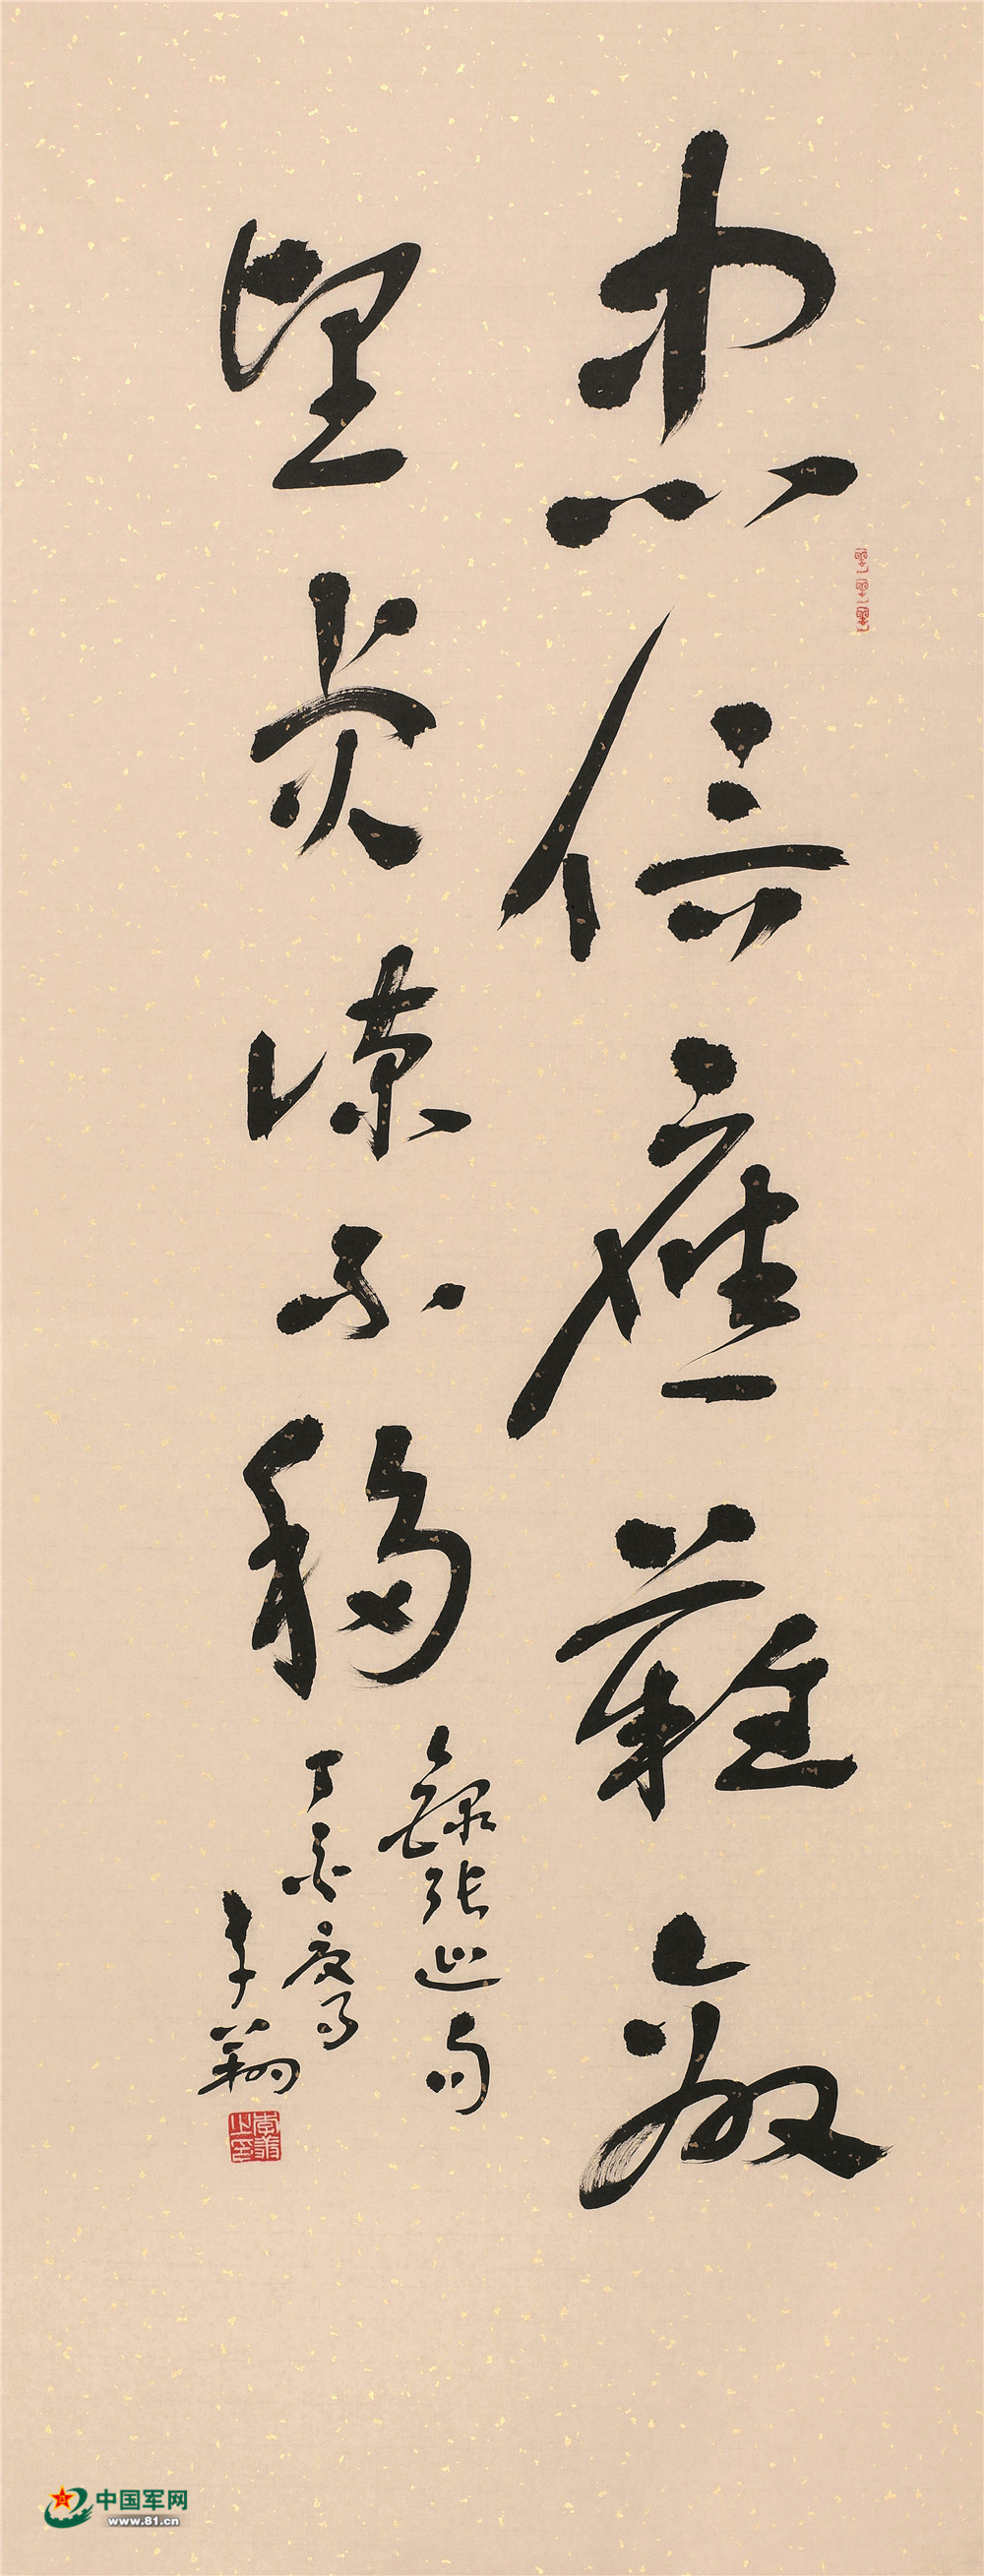 忠信应难敌
坚贞谅不移
录张巡句
丁酉夏多
李翔
中国军网
www.81.cn